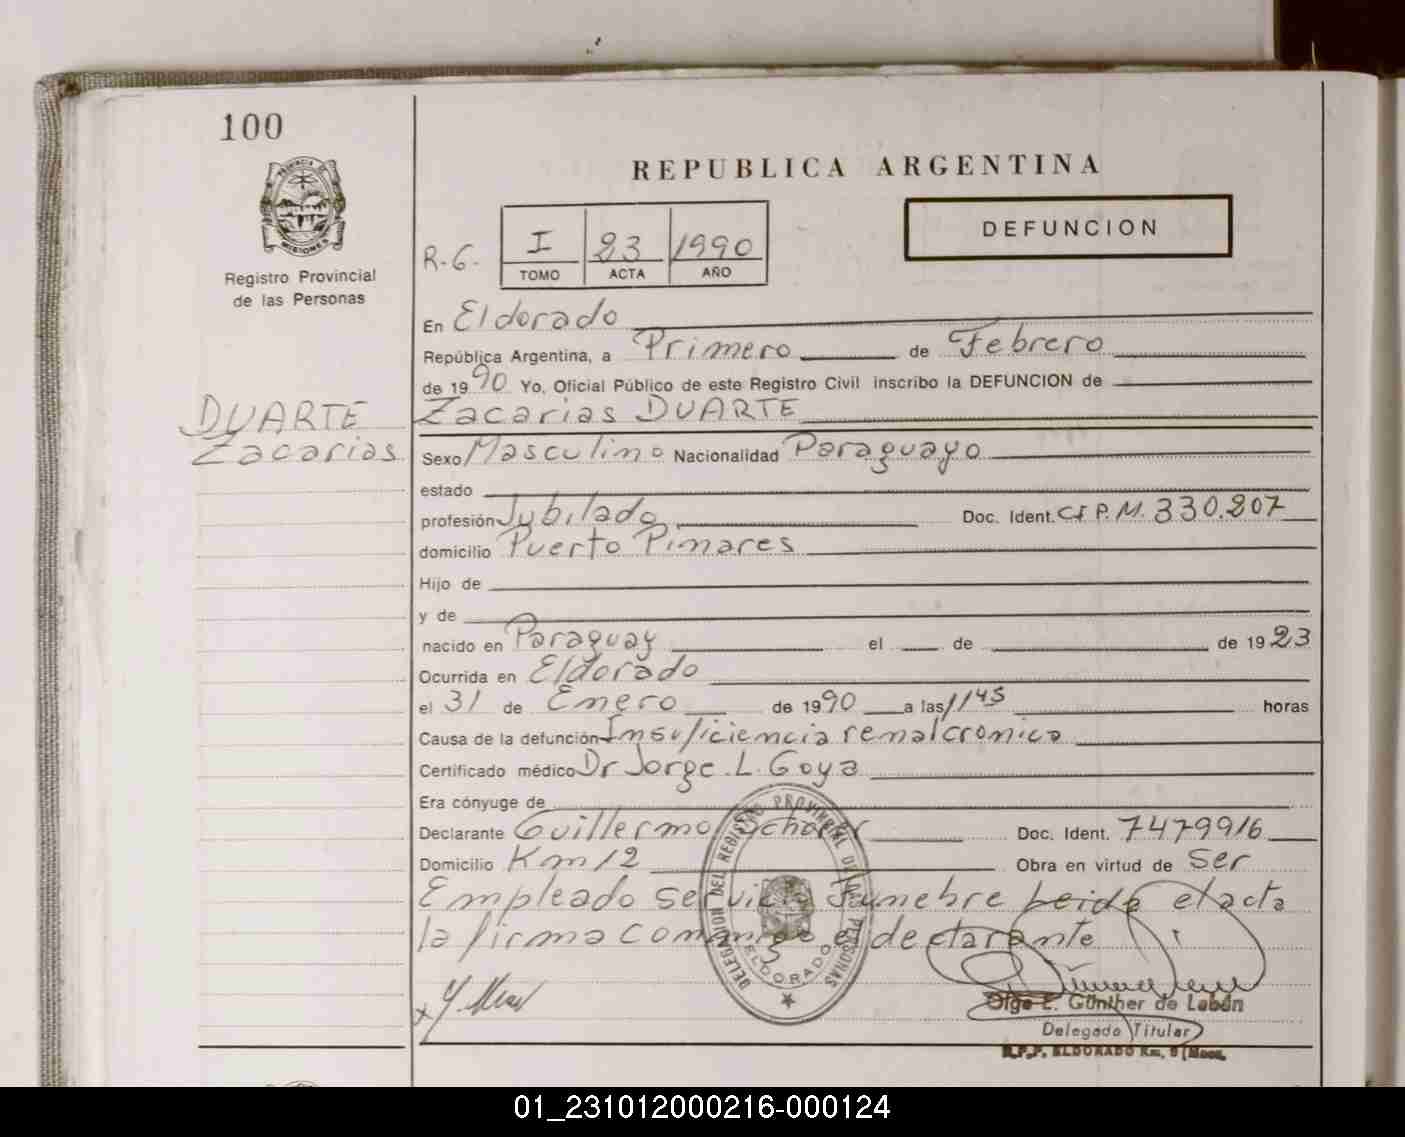 100
PROVINCIA DE
MISIONES
Registro Provincial
de las Personas
REPUBLICA ARGENTINA
DEFUNCION
R.G. I 23 1990
TOMO ACTA AÑO
En Eldorado
República Argentina, a Primero de Febrero
de 1990 Yo, Oficial Público de este Registro Civil inscribo la DEFUNCION de
DUARTE
Zacarias
Zacarias DUARTE
Sexo Masculino Nacionalidad Paraguayo
estado
profesión Jubilado Doc. Ident. C.I P.M. 330.207
domicilio Puerto Pinares
Hijo de
y de
nacido en Paraguay el de de 1923
Ocurrida en Eldorado
el 31 de Enero de 1990 a las 1145 horas
Causa de la defunción Insuficiencia renal cronica
Certificado médico Dr Jorge L. Goya
Era cónyuge de
Declarante Guillermo Doc. Ident. 7479916
Domicilio Km 12 Obra en virtud de ser
Empleado servicio Funebre Leida el acta
la firma conmigo el declarante
DELEGACION DEL REGISTRO PROVINCIAL DE LAS PERSONAS
ELDORADO
Olga E. Günther de Labán
Delegado Titular
R.P.P. ELDORADO Km. 9 (Mnes.
01_231012000216-000124